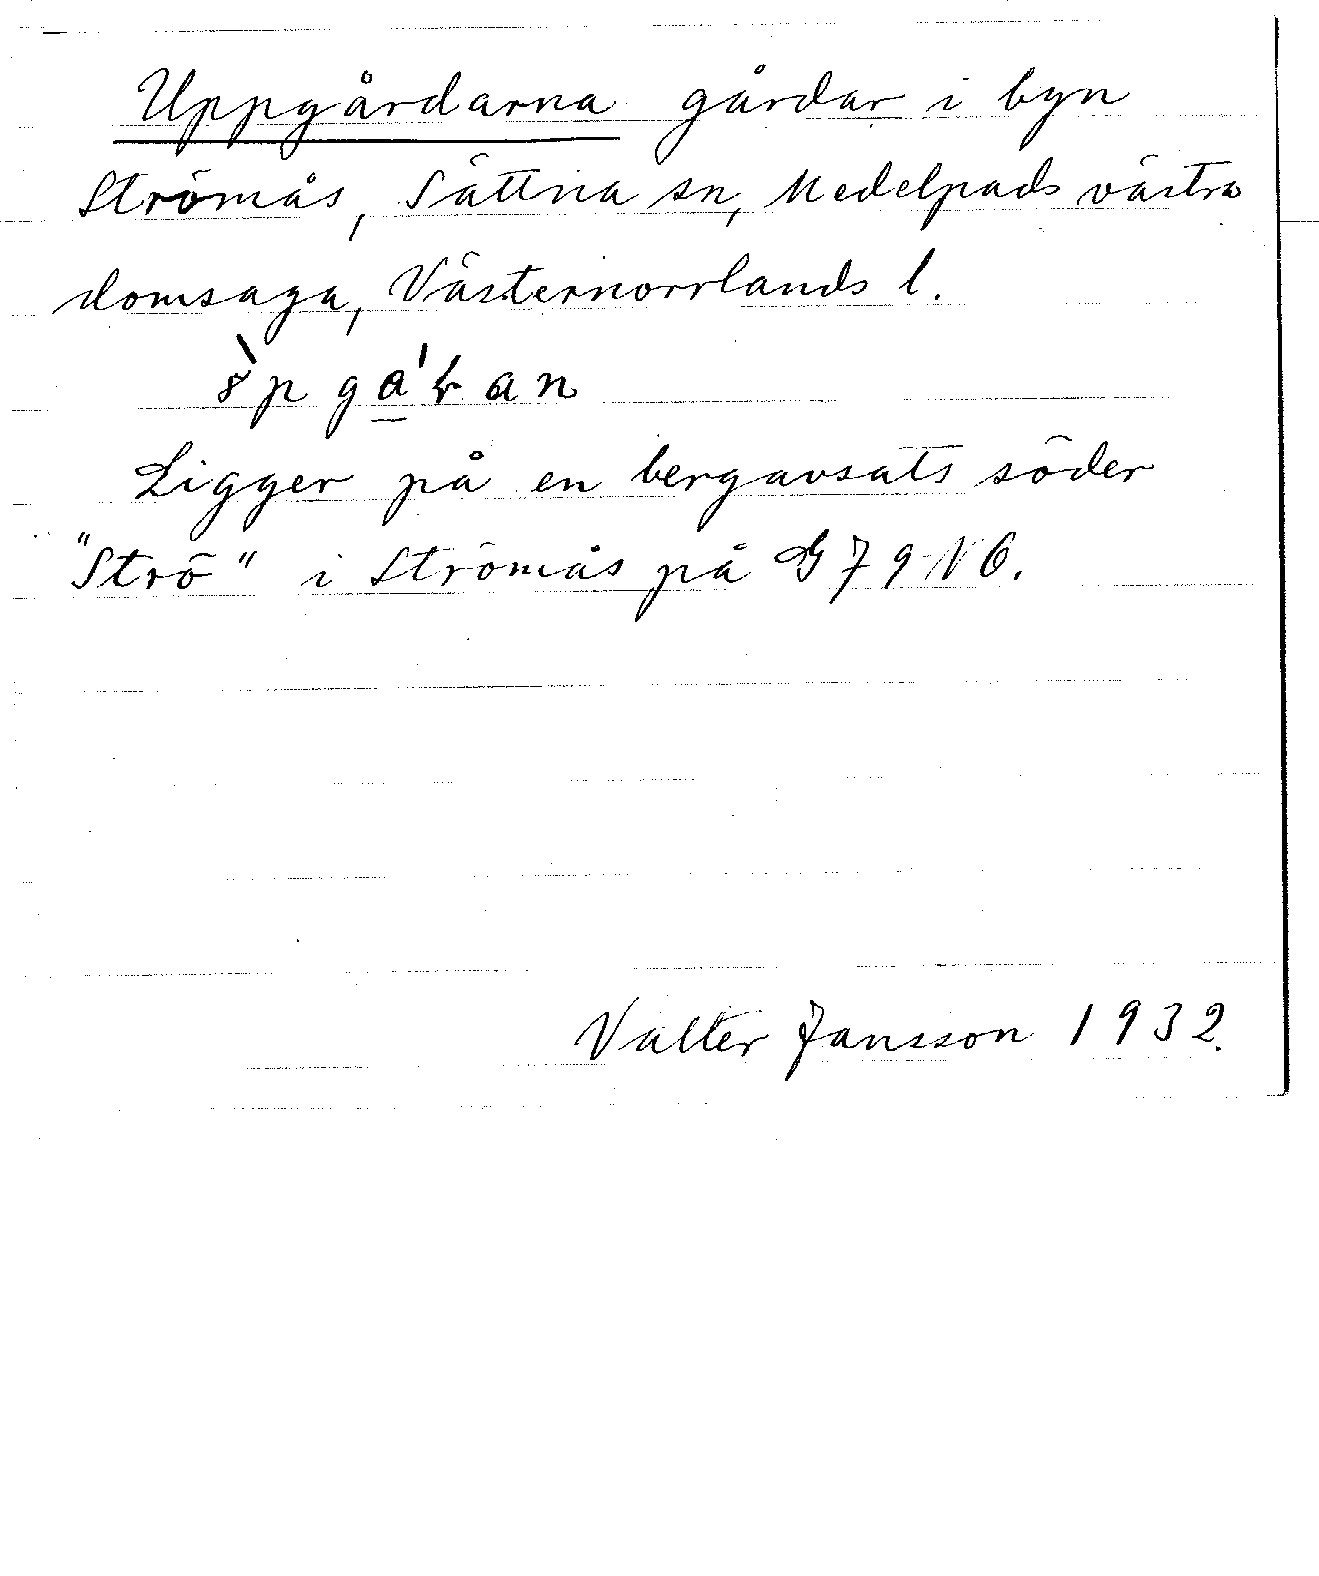 Uppgårdarna gårdar i byn
Strömås, Sättna sn, Medelpads västra
domsaga, Västernorrlands l.
Ligger på en bergavsats söder
"Strö" i Strömås på G79 NO.
Valter Jansson 1932.